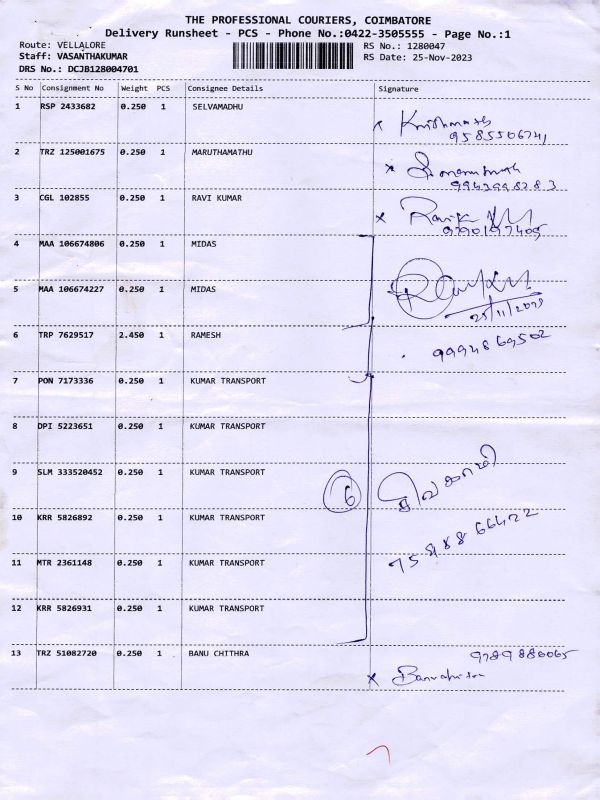 THE PROFESSIONAL COURIERS, COIMBATORE
Delivery Runsheet - PCS - Phone No.:0422-3505555 - Page No.:1
Route: VELLALORE
RS No.: 1280047
Staff: VASANTHAKUMAR
RS Date: 25-Nov-2023
DRS No.: DCJB128004701
S No Consignment No Weight PCS Consignee Details Signature
1 RSP 2433682 0.250 1 SELVAMADHU
9585506741
2 TRZ 125001675 0.250 1 MARUTHAMATHU
3 CGL 102855 0.250 1 RAVI KUMAR
9790197405
4 MAA 106674806 0.250 1 MIDAS
5 MAA 106674227 0.250 1 MIDAS
25/11/2023
6 TRP 7629517 2.450 1 RAMESH
9994869502
7 PON 7173336 0.250 1 KUMAR TRANSPORT
8 DPI 5223651 0.250 1 KUMAR TRANSPORT
9 SLM 333520452 0.250 1 KUMAR TRANSPORT
6
10 KRR 5826892 0.250 1 KUMAR TRANSPORT
11 MTR 2361148 0.250 1 KUMAR TRANSPORT
12 KRR 5826931 0.250 1 KUMAR TRANSPORT
13 TRZ 51082720 0.250 1 BANU CHITHRA
9789880065